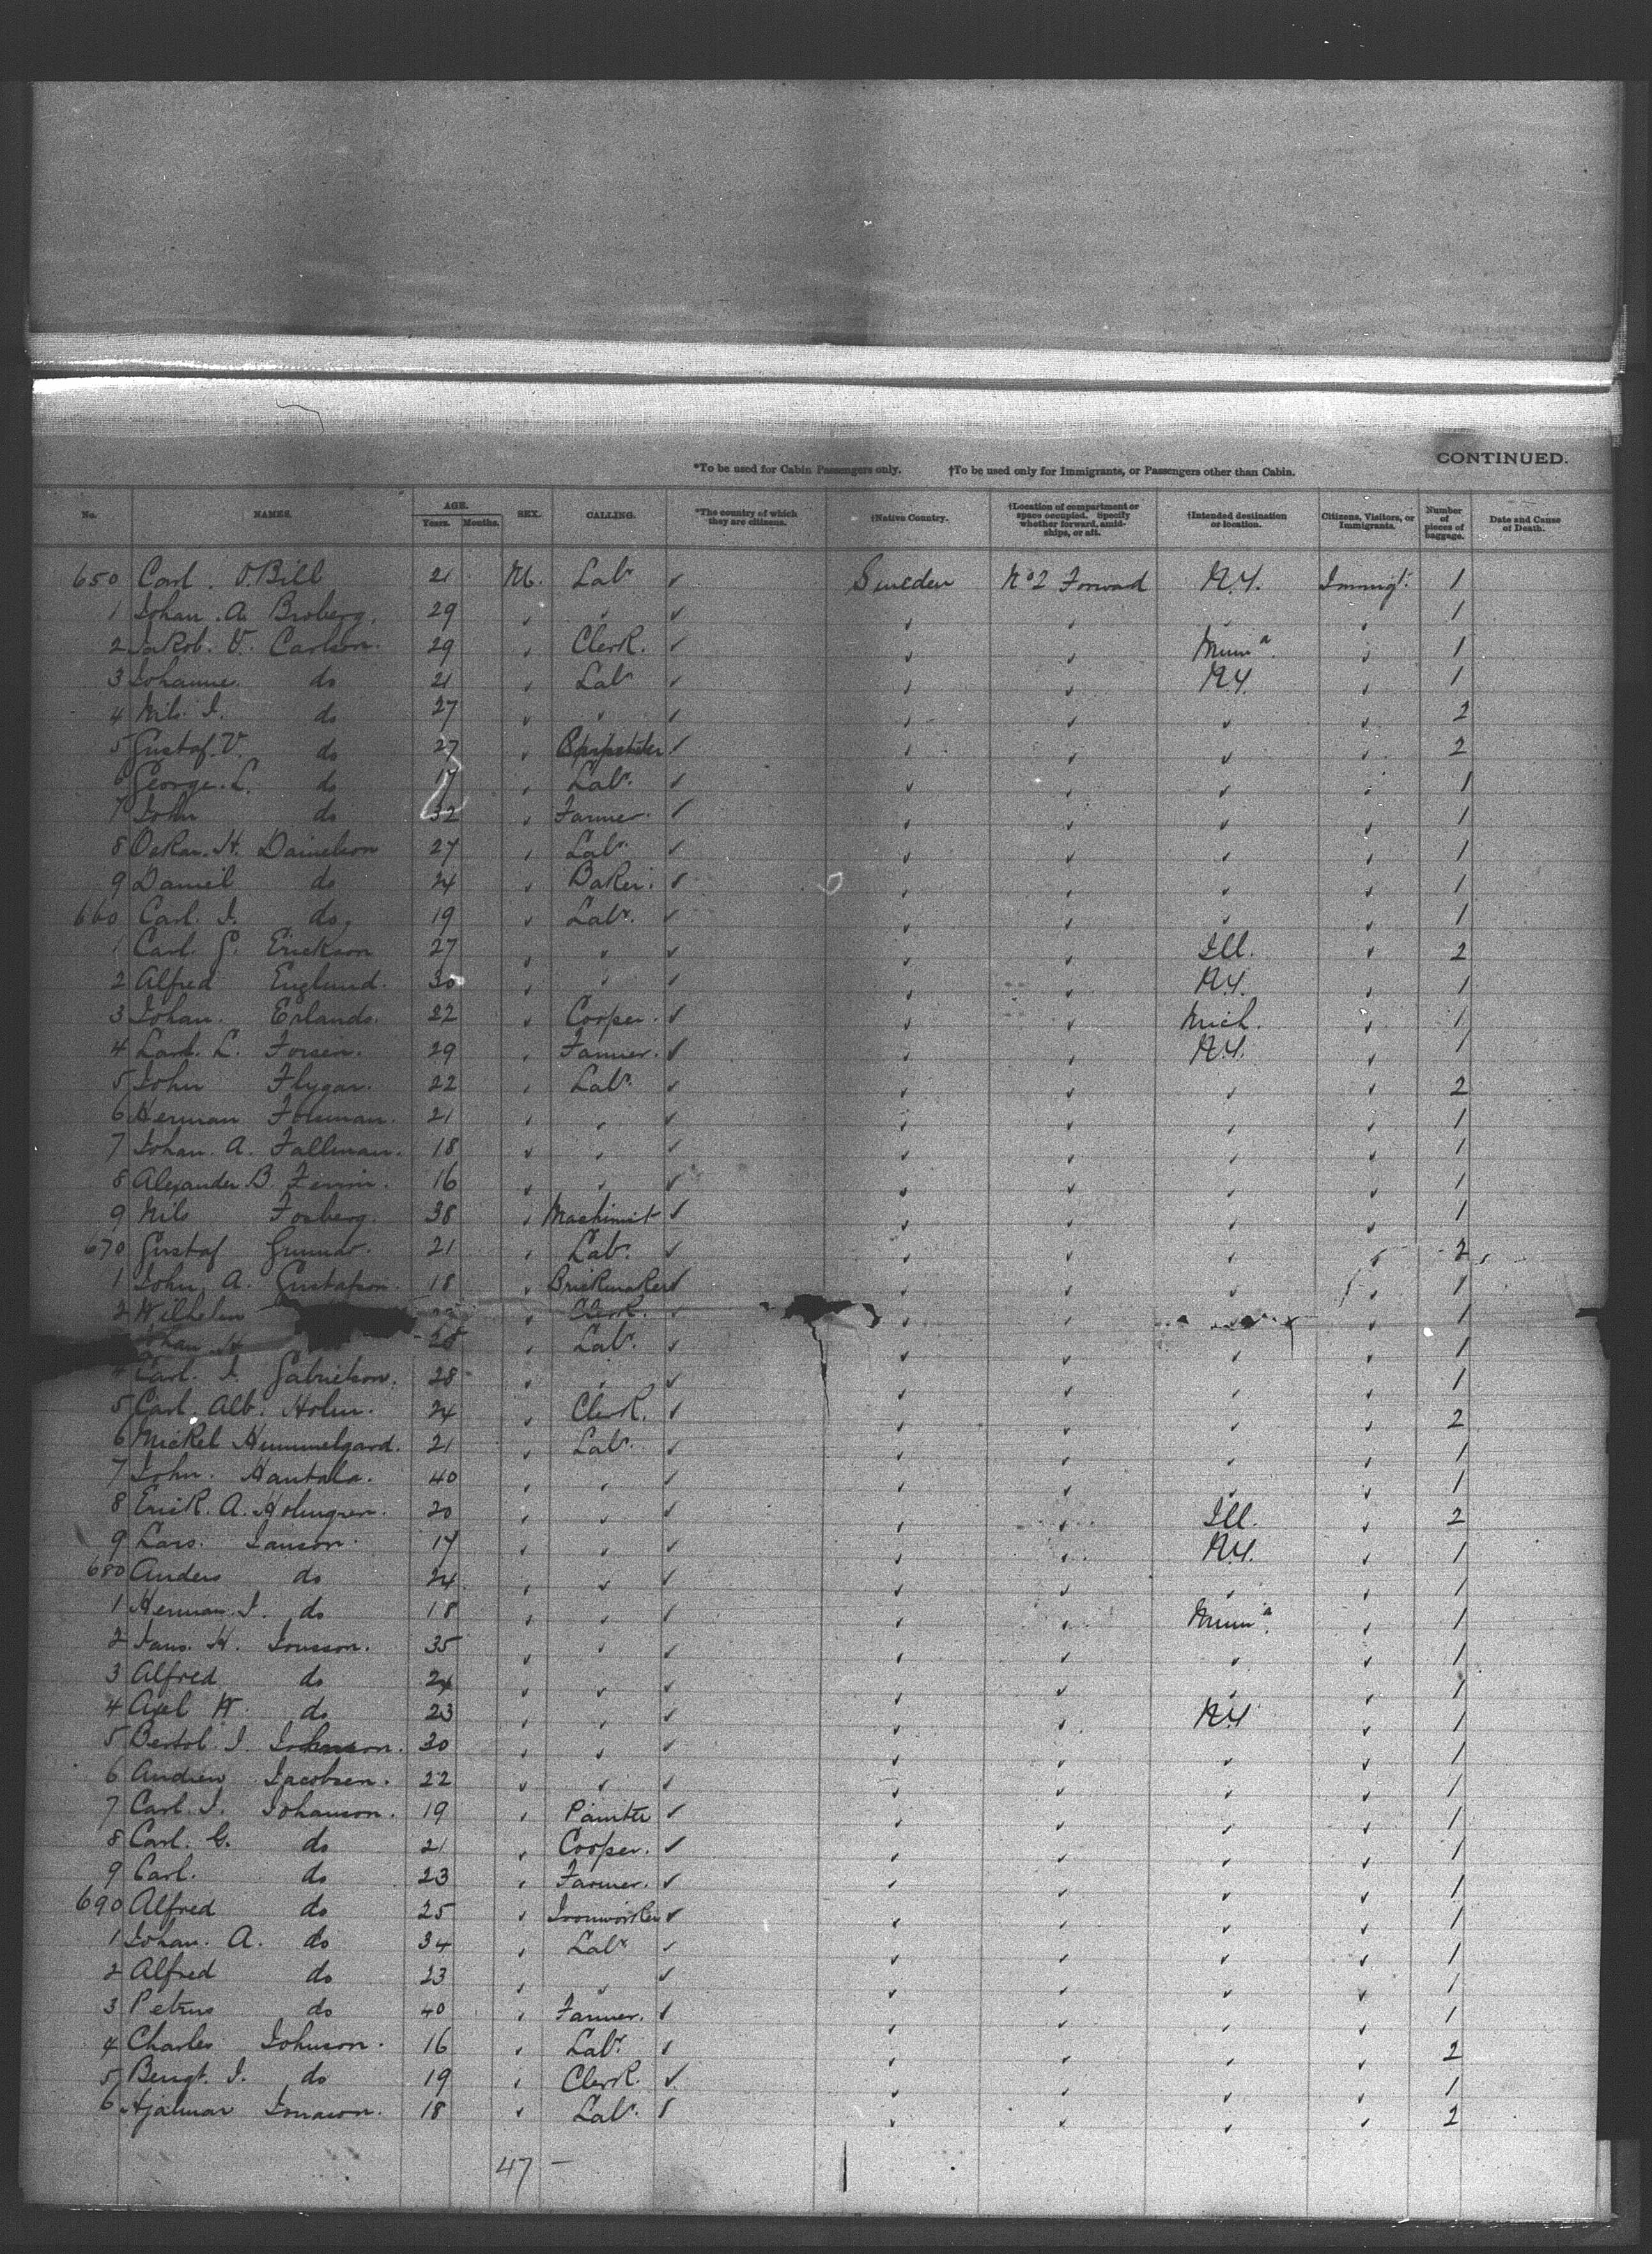 CONTINUED.
*To be used for Cabin Passengers only. †To be used only for Immigrants, or Passengers other than Cabin.
No. NAMES. AGE. Years. Months. SEX. CALLING. *The country of which they are citizens. †Native Country. †Location of compartment or space occupied. Specify whether forward, amidships, or aft. †Intended destination or location. Citizens, Visitors, or Immigrants. Number of pieces of baggage. Date and Cause of Death.
650 Carl. O. Bill 21 M. Labr ✓ Sweden No2 Forward N.Y. Immigt. 1
1 Johan. A. Broberg. 29 " " ✓ " " " " 1
2 Jakob. V. Carlson. 29 " Clerk. ✓ " " Minna. " 1
3 Johannes. do 21 " Labr ✓ " " N.Y. " 1
4 Nils. I. do 27 " " ✓ " " " " 2
5 Gustaf. V. do 27 " ✓ " " " " 2
6 George. L. do 17 " Labr. ✓ " " " " 1
7 John do 32 " Farmer. ✓ " " " " 1
8 Oskar. H. Danielson 27 " Labr. ✓ " " " " 1
9 Daniel do 24 " Baker. ✓ " " " " 1
660 Carl. I. do, 19 " Labr. ✓ " " " " 1
1 Carl. G. Erickson 27 " " ✓ " " Ill. " 2
2 Alfred Englund. 30 " " ✓ " " N.Y. " 1
3 Johan. Erlands. 22 " Cooper. ✓ " " Mich. " 1
4 Carl. L. 29 " Farmer. ✓ " " N.Y. " 1
5 John Flygar. 22 " Labr. ✓ " " " " 2
6 Herman 21 " " ✓ " " " " 1
7 Johan. A. Fallman. 18 " " ✓ " " " " 1
8 Alexander B. 16 " " ✓ " " " " 1
9 Nils Fosberg. 38 " Machinist ✓ " " " " 1
670 Gustaf Gunnar. 21 " Labr. ✓ " " " " 2
1 John. A. Gustafson. 18 " Brickmaker ✓ " " " " 1
2 Wilhelm " Clerk. ✓ " " " " 1
Johan. H " Labr. ✓ " " " " 1
4 Carl. I. Gabrielson. 28 " " ✓ " " " " 1
5 Carl. Alb. Holm. 24 " Clerk. ✓ " " " " 2
6 Mickel Hummelgard. 21 " Labr. ✓ " " " " 1
7 John. Hantala. 40 " " ✓ " " " " 1
8 Erick. A. Holmgren. 20 " " ✓ " " Ill. " 2
9 Lars. Janson. 17 " " ✓ " " N.Y. " 1
680 Anders do 24 " " ✓ " " " " 1
1 Herman. I. do 18 " " ✓ " " Minna. " 1
2 Jans. H. Jonsson. 35 " " ✓ " " " " 1
3 Alfred do 24 " " ✓ " " " " 1
4 Axel W. do 23 " " ✓ " " N.Y " 1
5 Bertol. I. Johnson. 30 " " ✓ " " " " 1
6 Andrew Jacobsen. 22 " " ✓ " " " " 1
7 Carl. I. Johanson. 19 " Painter ✓ " " " " 1
8 Carl. G. do 21 " Cooper. ✓ " " " " 1
9 Carl. do 23 " Farmer. ✓ " " " " 1
690 Alfred do 25 " Ironworker ✓ " " " " 1
1 Johan. A. do 34 " Labr ✓ " " " " 1
2 Alfred do 23 " " ✓ " " " " 1
3 Petrus do 40 " Farmer. ✓ " " " " 1
4 Charles Johnson. 16 " Labr. ✓ " " " " 2
5 Bengt. I. do 19 " Clerk. ✓ " " " " 1
6 Hjalmar Jonason. 18 " Labr. ✓ " " " " 2
47 –